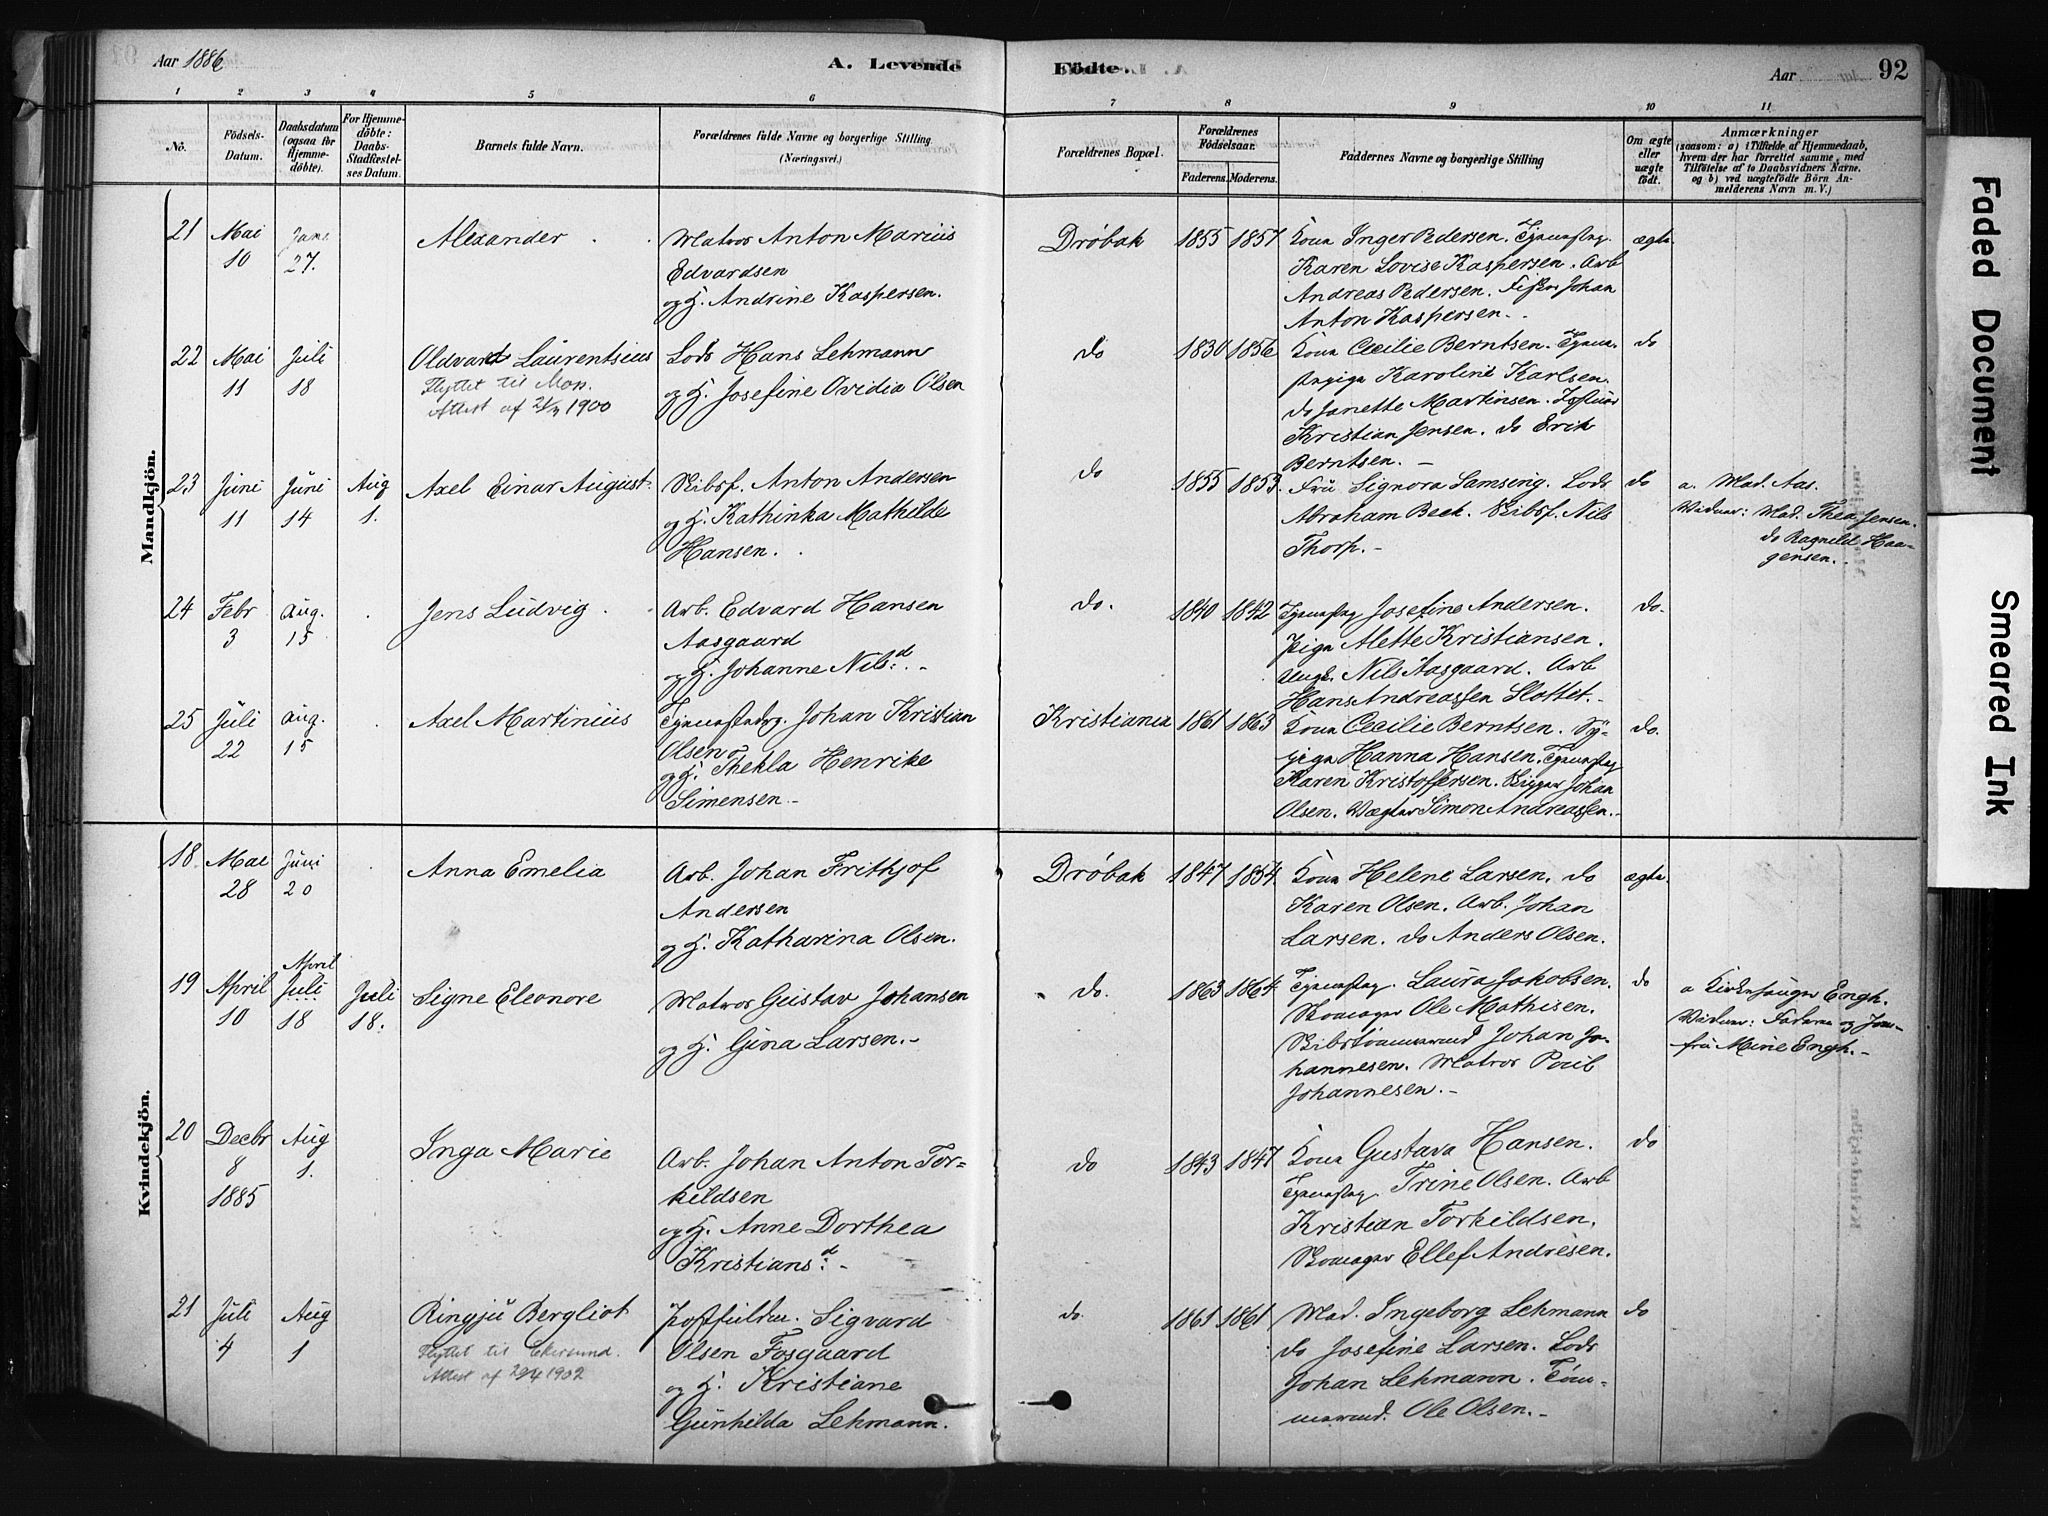 Aar 1886
A. Levende
Födte.
Aar
92
1 2 3 4 5 6 7 8 9 10 11
No.
Födsels-
Datum.
Daabsdatum
(ogsaa for
Hjemme-
döbte).
For Hjemme-
döbte:
Daabs-
Stadfæstel-
ses Datum.
Barnets fulde Navn.
Forældrenes fulde Navne og borgerlige Stilling
(Næringsvei.)
Forældrenes Bopæl.
Forældrenes
Födselsaar.
Faderens. Moderens.
Faddernes Navne og borgerlige Stilling
Om ægte
eller
uægte
födt.
Anmærkninger
(saasom: a) i Tilfælde af Hjemmedaab,
hvem der har forrettet samme, med
Tilföielse af to Daabsvidners Navne.
og b) ved uægtefödte Börn An-
melderens Navn m. V.)
Mandkjön.
21 Mai 10
27.
Alexander
Matros Anton Marius
Edvardsen
og H. Andrine Kaspersen.
Dröbak 1855 1857
Kona Inger Pedersen. Tjenestpg.
Karen Lovise Kaspersen. Arb
Andreas Pedersen. Fisker Johan
Anton Kaspersen.
ægte
22 Mai 11
Juli 18
Oldvard Laurentsius
Flyttet til Mon.
Attest af 1900
Lods Hans Lehmann
og H. Josefine Ovidia Olsen
do 1830 1856
Kona Cecilie Berntsen. Tjene-
stepige Karoline Karlsen.
do Janette Martinsen.
Kristian Jensen. do Erik
Berntsen. –
do
23 Juni 11
Juni 14
Aug 1.
Axel Einar August
Skibsf. Anton Andersen
og H. Kathinka Mathilde
Hansen.
do 1855 1853.
Frü Signora Samsing. Lods
Abraham Beck. Skibsf. Nils
Thorp. –
do
a. Mad. Aas.
Vidner: Mad. Thea Jensen.
do Ragnild Haa-
gensen.
24 Febr 3
Aug. 15
Jens Ludvig.
Arb. Edvard Hansen
Aasgaard
og H. Johanne Nilsd. –
do. 1840 1842
Tjenestpg Josefine Andersen.
Pige Alette Kristiansen.
Ungk. Nils Aasgaard. Arb
Hans Andreassen Slottet. –
do.
25 Juli 22
Aug. 15
Axel Martinius
Johan Kristian
Olsen
og H. Thekla Henrike
Simensen. –
Kristiania 1861 1863
Kona Cecilie Berntsen. Sy-
pige Hanna Hansen. Tjenestpg
Karen Kristoffersen. Johan
Olsen. Vægter Simon Andreassen. –
do.
Kvindekjön.
18. Mai 28
Juni 20
Anna Emelia
Arb. Johan Frithjof
Andersen
og H. Katharina Olsen.
Dröbak 1847 1854.
Kona Helene Larsen. do
Karen Olsen. Arb. Johan
Larsen. do Anders Olsen.
ægte.
19 April 10
April
Juli 18
Juli 18.
Signe Eleonore
Matros Gustav Johansen
og H. Gina Larsen. –
do. 1863 1864
Tjenestpg. Laura Jakobsen.
Skomager Ole Mathisen.
Skibstömmermd Johan Jo-
hannesen. Matros Poul
Johannesen. –
do
a Kirkesanger Engh.
Vidner: Faderen og Jom-
frü Mine Engh. –
20 Decbr 8
1885
Aug 1.
Inga Marie
Arb. Johan Anton Tor-
kildsen
og H. Anne Dorthea
Kristiansd. –
do 1843 1847
Kona Gustava Hansen.
Tjenestpg. Trine Olsen. Arb
Kristian Torkildsen.
Skomager Ellef Andresen.
do
21 Juli 4
Aug 1
Ringju Bergliot
Flyttet til Ekersund.
Attest af 29/4 1902
Sigvard
Olsen Fosgaard
og H. Kristiane
Gunhilda Lehmann.
do. 1861 1861
Mad. Ingeborg Lehmann
do Josefine Larsen. Lods
Johan Lehmann. Töm-
mermd. Ole Olsen. –
do
Faded Document
Smeared Ink